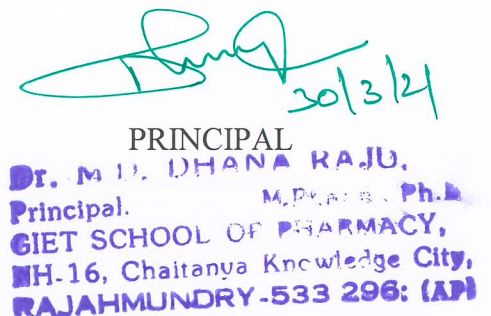 30/3/21
PRINCIPAL
Dr. M.D. DHANA RAJU,
Principal. M.Pharm., Ph.D
GIET SCHOOL OF PHARMACY,
NH-16, Chaitanya Knowledge City,
RAJAHMUNDRY-533 296: (AP)